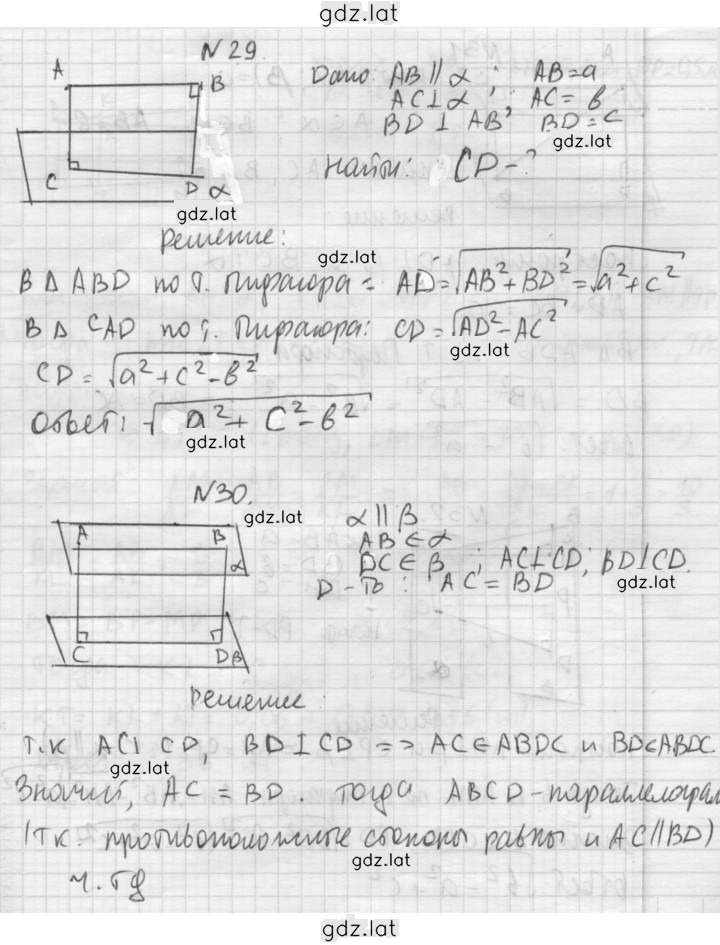 gdz.lat
N 29.
A
B
C
D
α
Дано: AB ∥ α ; AB = a
AC ⊥ α ; AC = b
BD ⊥ AB BD = c
gdz.lat
Найти: CD - ?
gdz.lat
Решение:
gdz.lat
В Δ ABD по т. Пифагора: AD = √AB² + BD² = √a² + c²
В Δ CAD по т. Пифагора: CD = √AD² - AC²
gdz.lat
CD = √a² + c² - b²
Ответ: √a² + c² - b²
gdz.lat
N 30.
gdz.lat
A
B
α
C
D
β
α ∥ β
AB ∈ α
DC ∈ β ; AC ⊥ CD; BD ⊥ CD.
Д - Ть : AC = BD
gdz.lat
Решение
т.к AC ⊥ CD, BD ⊥ CD => AC ∈ ABDC и BD ∈ ABDC
gdz.lat
Значит, AC = BD. тогда ABCD - параллелограм
(т.к. противоположные стороны равны и AC ∥ BD)
gdz.lat
ч. тд
gdz.lat